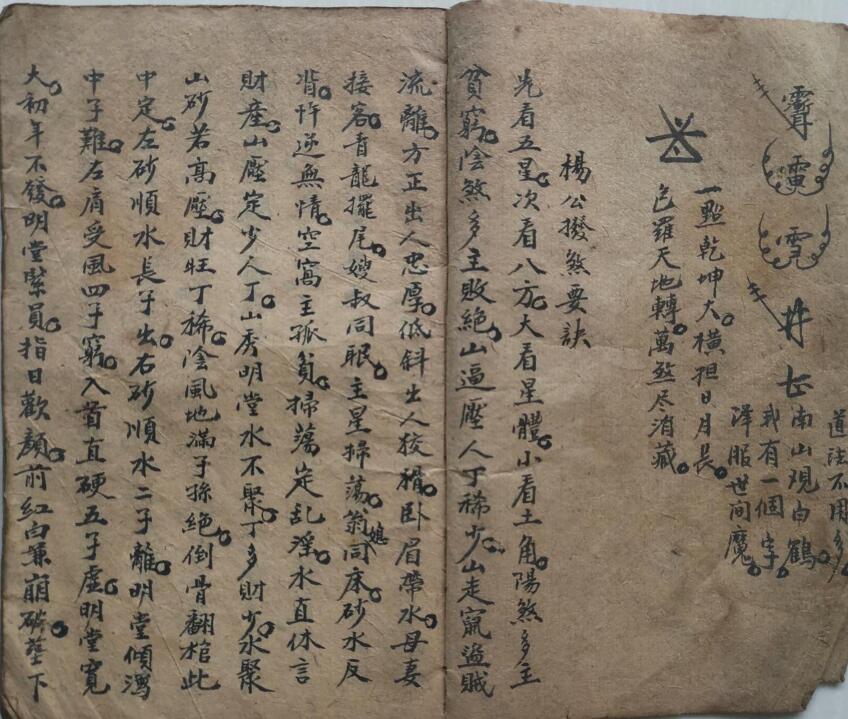 道法不用多。
南山观白鶴。
我有一個字。
降服世间魔。
一點乾坤大。橫担日月長。
包羅天地轉。萬煞尽消藏。
楊公撥煞要訣
先看五星。次看八方。大看星體。小看土角。陽煞多主
貧窮。陰煞多主敗絶。山逼壓人丁稀少。山走竄盜賊
流離。方正出人忠厚。低斜出人狡猾。卧眉帶水。母妻
接客。青龍擺尾。嫂叔同眠。主星掃蕩。翁媳同床。砂水反
背。忤逆無情。空窩主孤貧。掃蕩定乱淫。水直休言
財產。山壓定少人丁。山秀明堂水不聚。丁多財少。水聚
山砂若高壓。財旺丁稀。陰風地滿子孫絶。倒骨翻棺此
中定。左砂順水長子出。右砂順水二子離。明堂傾瀉
中子難。左肩受風四子窮。入首直硬五子虛。明堂寬
大。初年不發。明堂緊員。指日歡顏。前紅白兼崩破。下